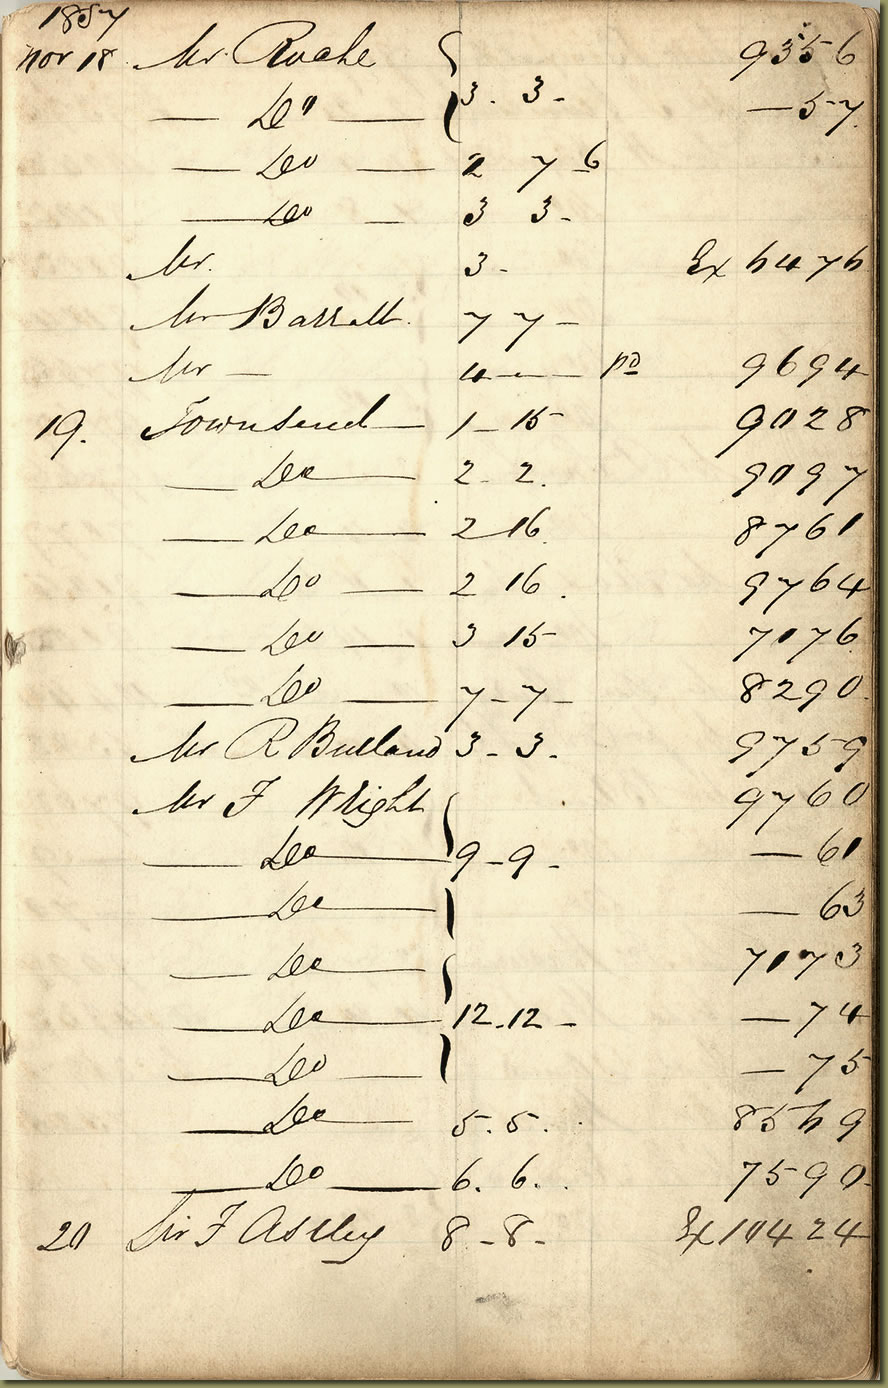 1857
Nov 18 Mr. Roche 9356
— Do — 3. 3 - — 57
— Do — 2 7 6
— Do — 3 3 -
Mr. 3 - Ex 6476
Mr Barratt 7 7 -
Mr — 4 — — pd 9694
19. Townsend — 1 - 15 9028
— Do — 2 - 2. 9097
— Do — 2 16 8761
— Do — 2 16. 9764
— Do — 3 15 7076
— Do — 7 - 7 - 8290
Mr R Butland 3 - 3. 9759
Mr F Wright 9760
— Do — 9 - 9 - — 61
— Do — — 63
— Do — 7073
— Do — 12. 12 - — 74
— Do — — 75
— Do 5. 5. 8569
— Do — 6. 6. 7590
20 Sir F Astley 8 - 8 - Ex 10424